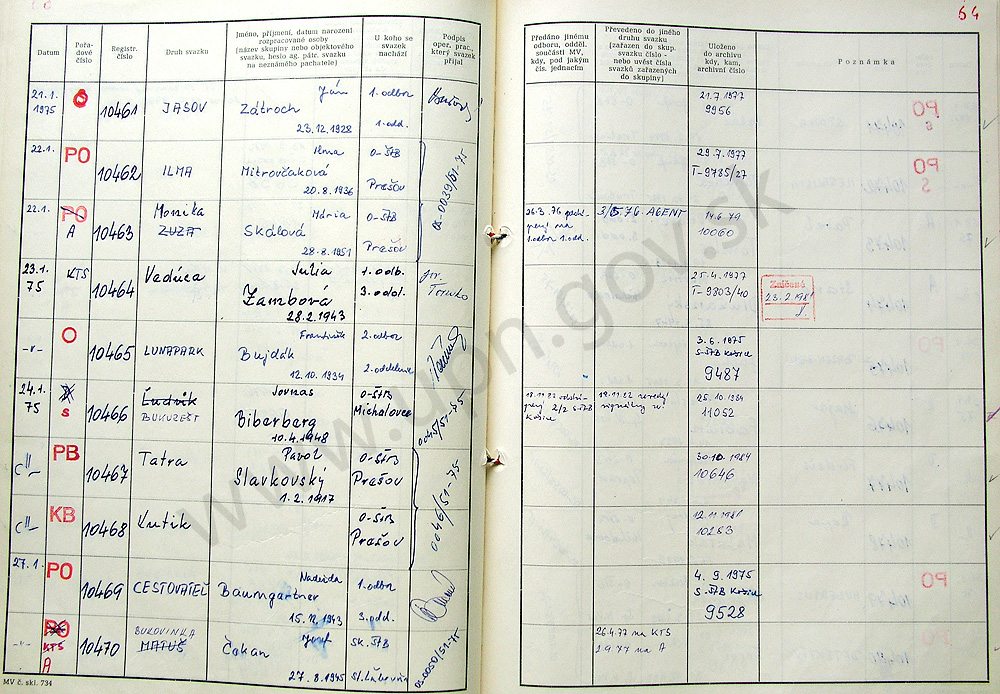 64
Datum
Pořadové číslo
Registr. číslo
Druh svazku
Jméno, příjmení, datum narození rozpracované osoby (název skupiny nebo objektového svazku, heslo ag. pátr. svazku na neznámého pachatele)
U koho se svazek nachází
Podpis oper. prac., který svazek přijal
Předáno jinému odboru, odděl. součásti MV, kdy, pod jakým čís. jednacím
Převedeno do jiného druhu svazku (zařazen do skup. svazku číslo - nebo uvést čísla svazků zařazených do skupiny)
Uloženo do archivu kdy, kam, archivní číslo
Poznámka
21.1. 1975 10461 JASOV Ján Zátroch 23.12.1928 1. odbor 1. odd. 21.7.1977 9956
22.1. PO 10462 ILMA Ilma Mitrovčaková 20.8.1936 O-ŠtB Prešov 03-0039/51-75 29.7.1977 T-9785/27
22.1. PO A 10463 Monika ZUZA Mária Skálová 28.8.1951 O-ŠtB Prešov 26.3.76 1. odbor 1. odd. AGENT 14.6.79 10060
23.1. 75 KTS 10464 Vedúca Júlia Zambová 28.2.1943 1. odb. 3. odd. 25.4.1977 T-9803/40 Zničené 23.2.1981
-"- O 10465 LUNAPARK František Bujdák 12.10.1934 2. odbor 2. oddelenie 3.6.1975 S-ŠtB Košice 9487
24.1. 75 S 10466 Ľudvik BUKUREŠT Jonnas Biberberg 10.4.1948 O-ŠtB Michalovce 0045/51-75 25.10.1984 11052
-"- PB 10467 Tatra Pavol Slavkovský 1.2.1917 O-ŠtB Prešov 0046/51-75 30.10.1984 10646
-"- KB 10468 Kutik O-ŠtB Prešov 12.11.1981 10283
27.1. PO 10469 CESTOVATEĽ Nadežda Baumgartner 15.12.1943 1. odbor 3. odd. 4.9.1975 S-ŠtB Košice 9528
-"- PO KTS A 10470 BUKOVINKA MATÚŠ Jozef Čakan 27.8.1945 sk. ŠtB St. Ľubovňa 03-0050/51-75 26.4.77 na KTS 2.9.77 na A
MV č. skl. 734
www.upn.gov.sk